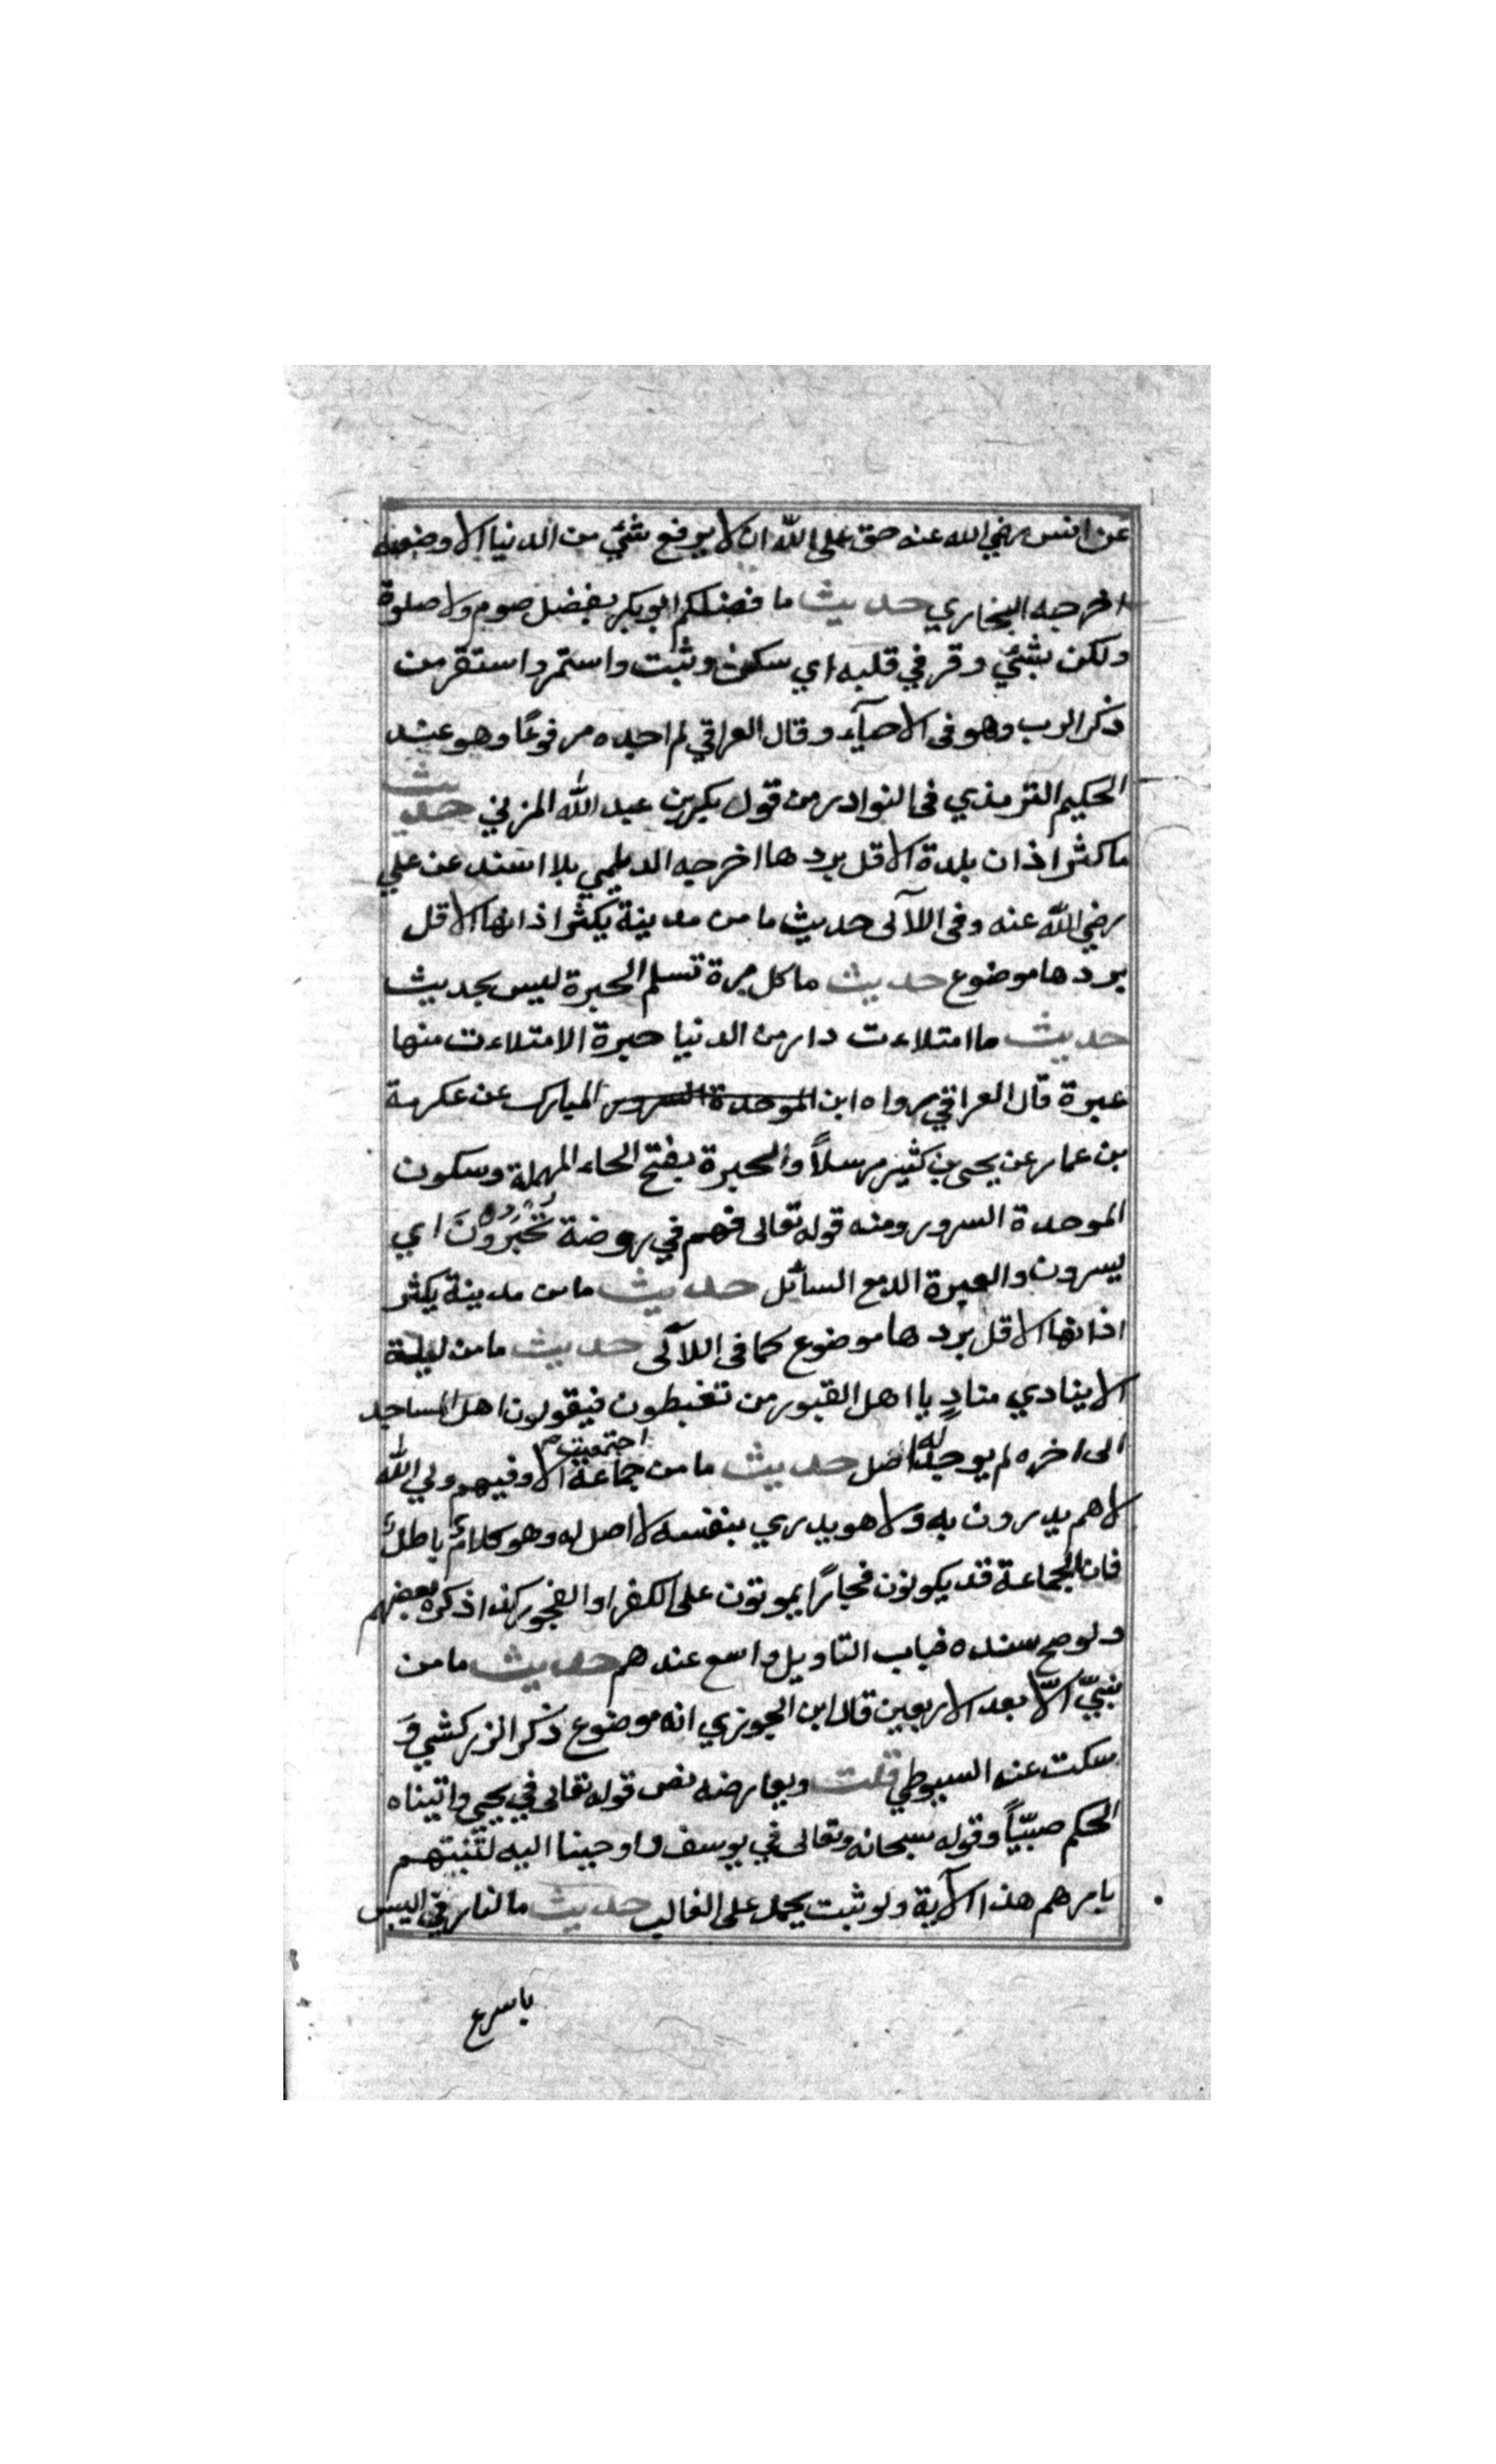 عن انس رضي الله عنه حق على الله ان لا يرفع شئ من الدنيا الا وضعه
اخرجه البخاري حديث ما فضلكم ابو بكر بفضل صوم ولا صلوة
ولكن بشئ وقر في قلبه اي سكن وثبت واستمر واستقر من
ذكر الرب وهو فى الاحيآء وقال العراقي لم اجده مرفوعًا وهو عند
الحكيم الترمذي فى النوادر من قول بكر بن عبد الله المزني حديث
ما كثر اذان بلدة الا قل بردها اخرجه الديلمي بلا اسند عن علي
رضي الله عنه وفى اللآلى حديث ما من مدينة يكثر اذانها الا قل
بردها موضوع حديث ما كل مرة تسلم الجرة ليس بحديث
حديث ما امتلاءت دار من الدنيا حبرة الا متلاءت منها
عبرة قال العراقي رواه ابن الموحدة السرور المبارك عن عكرمة
بن عمار عن يحيى بن كثير مرسلاً والحبرة بفتح الحاء المهملة وسكون
الموحدة السرور ومنه قوله تعالى فهم في روضة تُحْبَرُونَ اي
يسرون والعبرة الدمع السائل حديث ما من مدينة يكثر
اذانها الا قل بردها موضوع كما فى اللآلى حديث ما من ليلة
الا ينادي منادٍ يا اهل القبور من تغبطون فيقولون اهل المساجد
الى اخره لم يوجد له اصل حديث ما من جماعة اجتمعت الا وفيهم ولي الله
لا هم يدرون به ولا هو يدري بنفسه لا اصل له وهو كلامٌ باطلٌ
فان الجماعة قد يكونون فجارًا يموتون على الكفر او الفجور كذا ذكره بعضهم
ولو صح سنده فباب التاويل واسع عندهم حديث ما من
نبيّ الّا بعد الاربعين قال ابن الجوزي انه موضوع ذكر الزركشي وَ
سكت عنه السيوطي قلت ويعارضه نص قوله تعالى في يحيى واتيناه
الحكم صبيّاً وقوله سبحانه وتعالى في يوسف واوحينا اليه لتنبئنهم
بامرهم هذا الآية ولو ثبت يحمل على الغالب حديث ما النار في اليبس
باسرع